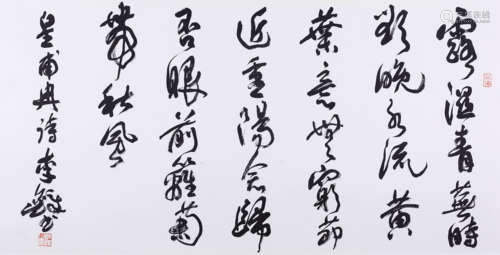 露湿青蕪時
欲晚水流黄
葉意無窮節
近重陽念歸
否眼前籬菊
帶秋風
皇甫冉詩李鐸书